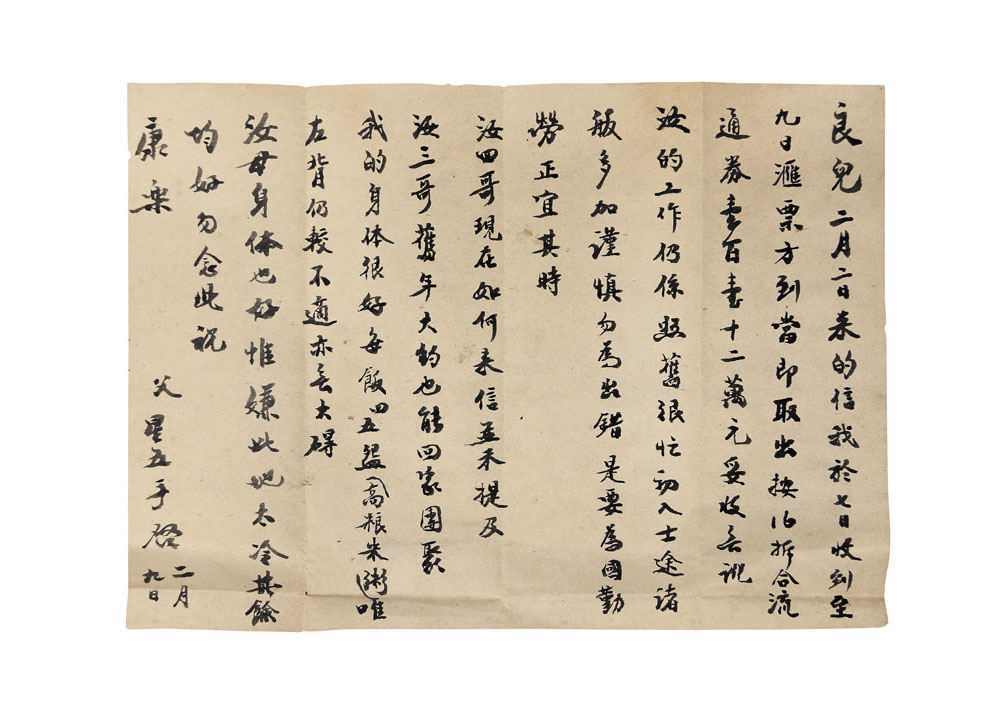 良兒二月二日来的信我於七日收到至
九日滙票方到當即取出按16折合流
通券壹百壹十二萬元妥收无訛
汝的工作仍係照舊很忙初入士途諸
般多加謹慎勿為出錯是要為國勤
勞正宜其時
汝四哥現在如何来信並未提及
汝三哥舊年大約也能回家團聚
我的身体很好每飯四五盌(高粮米粥)唯
左背仍較不適亦无大碍
汝母身体也好惟嫌此地太冷其餘
均好勿念此祝
康樂
父星五手啓
二月
九日